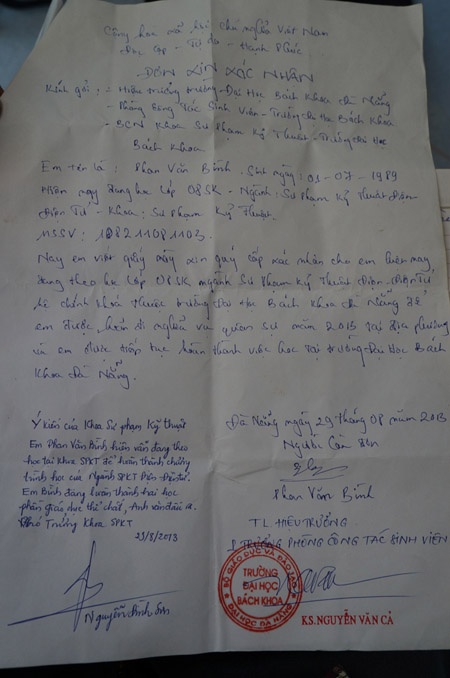 Cộng hoà xã hội chủ nghĩa Việt Nam
Độc lập - Tự do - Hạnh Phúc
ĐƠN XIN XÁC NHẬN
Kính gởi: - Hiệu trưởng trường Đại Học Bách Khoa Đà Nẵng
- Phòng Công Tác Sinh Viên - Trường Đại Học Bách Khoa
- BCN Khoa Sư Phạm Kỹ Thuật - Trường Đại Học
Bách Khoa
Em tên là: Phan Văn Bính. Sinh ngày: 01-07-1989
Hiện nay đang học lớp 08SK - Ngành: Sư Phạm Kỹ Thuật Điện-
Điện Tử - Khoa: Sư Phạm Kỹ Thuật.
MSSV: 108211081103.
Nay em viết giấy này xin quý cấp xác nhận cho em hiện nay
đang theo học lớp 08SK ngành Sư Phạm Kỹ Thuật Điện-Điện Tử
hệ chính khoá thuộc trường Đại Học Bách Khoa Đà Nẵng để
em được hoãn đi nghĩa vụ quân sự năm 2013 tại địa phương
và em được tiếp tục hoàn thành việc học tại trường Đại Học Bách
Khoa Đà Nẵng.
Đà Nẵng ngày 29 tháng 08 năm 2013
Người Làm Đơn
Phan Văn Bính
Ý kiến của Khoa Sư phạm Kỹ thuật
Em Phan Văn Bính hiện vẫn đang theo
học tại khoa SPKT để hoàn thành chương
trình học của Ngành SPKT Điện Điện tử.
Em Bính đang hoàn thành hai học
phần giáo dục thể chất, Anh văn đầu ra.
Phó Trưởng Khoa SPKT
29/8/2013
Nguyễn Đình Sơn
TL HIỆU TRƯỞNG
TRƯỞNG PHÒNG CÔNG TÁC SINH VIÊN
BỘ GIÁO DỤC VÀ ĐÀO TẠO
TRƯỜNG
ĐẠI HỌC
BÁCH KHOA
ĐẠI HỌC ĐÀ NẴNG
KS.NGUYỄN VĂN CẢ